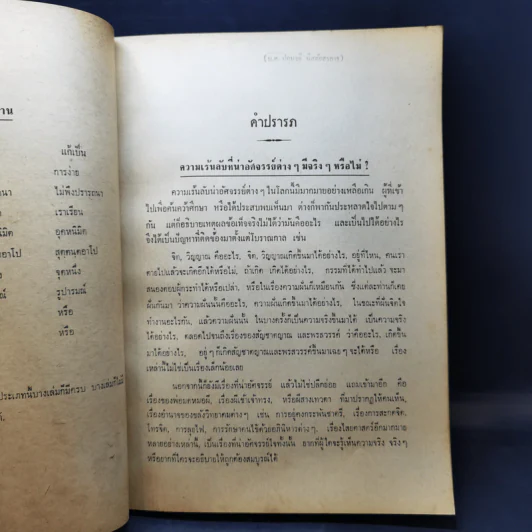 าน
แก้เป็น
การง่าย
ไม่พึงปรารถนา
เราเรียน
อุคหนิมิต
สุตคนุตอาโป
จุดหนึ่ง
รูปารมณ์
หรือ
หรือ
ประเภทนี้บางเล่มก็มีครบ บางเล่มก็ไม่มี
คำปรารภ
ความเร้นลับที่น่าอัศจรรย์ต่าง ๆ มีจริง ๆ หรือไม่ ?
ความเร้นลับน่าอัศจรรย์ต่าง ๆ ในโลกนี้มีมากมายอย่างเหลือเกิน ผู้ที่เข้า
ไปเพื่อค้นคว้าศึกษา หรือได้ประสบพบเห็นมา ต่างก็พากันประหลาดใจไปตาม ๆ
กัน แต่ก็อธิบายเหตุผลข้อเท็จจริงไม่ได้ว่ามันคืออะไร และเป็นไปได้อย่างไร
จึงได้เป็นปัญหาที่ติดข้องมาตั้งแต่โบราณกาล เช่น
จิต, วิญญาณ คืออะไร, จิต, วิญญาณเกิดขึ้นมาได้อย่างไร, อยู่ที่ไหน, คนเรา
ตายไปแล้วจะเกิดอีกได้หรือไม่, ถ้าเกิด เกิดได้อย่างไร, กรรมที่ได้ทำไปแล้ว จะมา
สนองตอบผู้กระทำได้หรือเปล่า, หรือในเรื่องความฝันก็เหมือนกัน ซึ่งแต่ละท่านก็เคย
ฝันกันมา ว่าความฝันนั้นคืออะไร, ความฝันเกิดขึ้นมาได้อย่างไร, ในขณะที่ฝันจิตใจ
ทำงานอะไรกัน, แล้วความฝันนั้น ในบางครั้งก็เป็นความจริงขึ้นมาได้ เป็นความจริง
ได้อย่างไร, ตลอดไปจนถึงเรื่องของสัญชาตญาณ และพรสวรรค์ ว่าคืออะไร, เกิดขึ้น
มาได้อย่างไร, อยู่ ๆ ก็เกิดสัญชาตญาณและพรสวรรค์ขึ้นมาเฉย ๆ จะได้หรือ เรื่อง
เหล่านี้ไม่ใช่เป็นเรื่องเล็กน้อยเลย
นอกจากนี้ก็ยังมีเรื่องที่น่าอัศจรรย์ แล้วไม่ใช่ปลีกย่อย แถมเข้ามาอีก คือ
เรื่องของพ่อมดหมอผี, เรื่องผีเข้าเจ้าทรง, หรือผีสางเทวดา ที่มาปรากฏให้คนเห็น,
เรื่องอำนาจของขลังวิทยาคมต่าง ๆ เช่น การอยู่คงกระพันชาตรี, เรื่องการสะกดจิต,
โทรจิต, การลุยไฟ, การรักษาคนไข้ด้วยอภินิหารต่าง ๆ, เรื่องไสยศาสตร์อีกมากมาย
หลายอย่างเหล่านี้, เป็นเรื่องที่น่าอัศจรรย์ใจทั้งนั้น ยากที่ผู้ใดจะรู้เห็นความจริง จริง ๆ
หรือยากที่ใครจะอธิบายให้ถูกต้องสมบูรณ์ได้